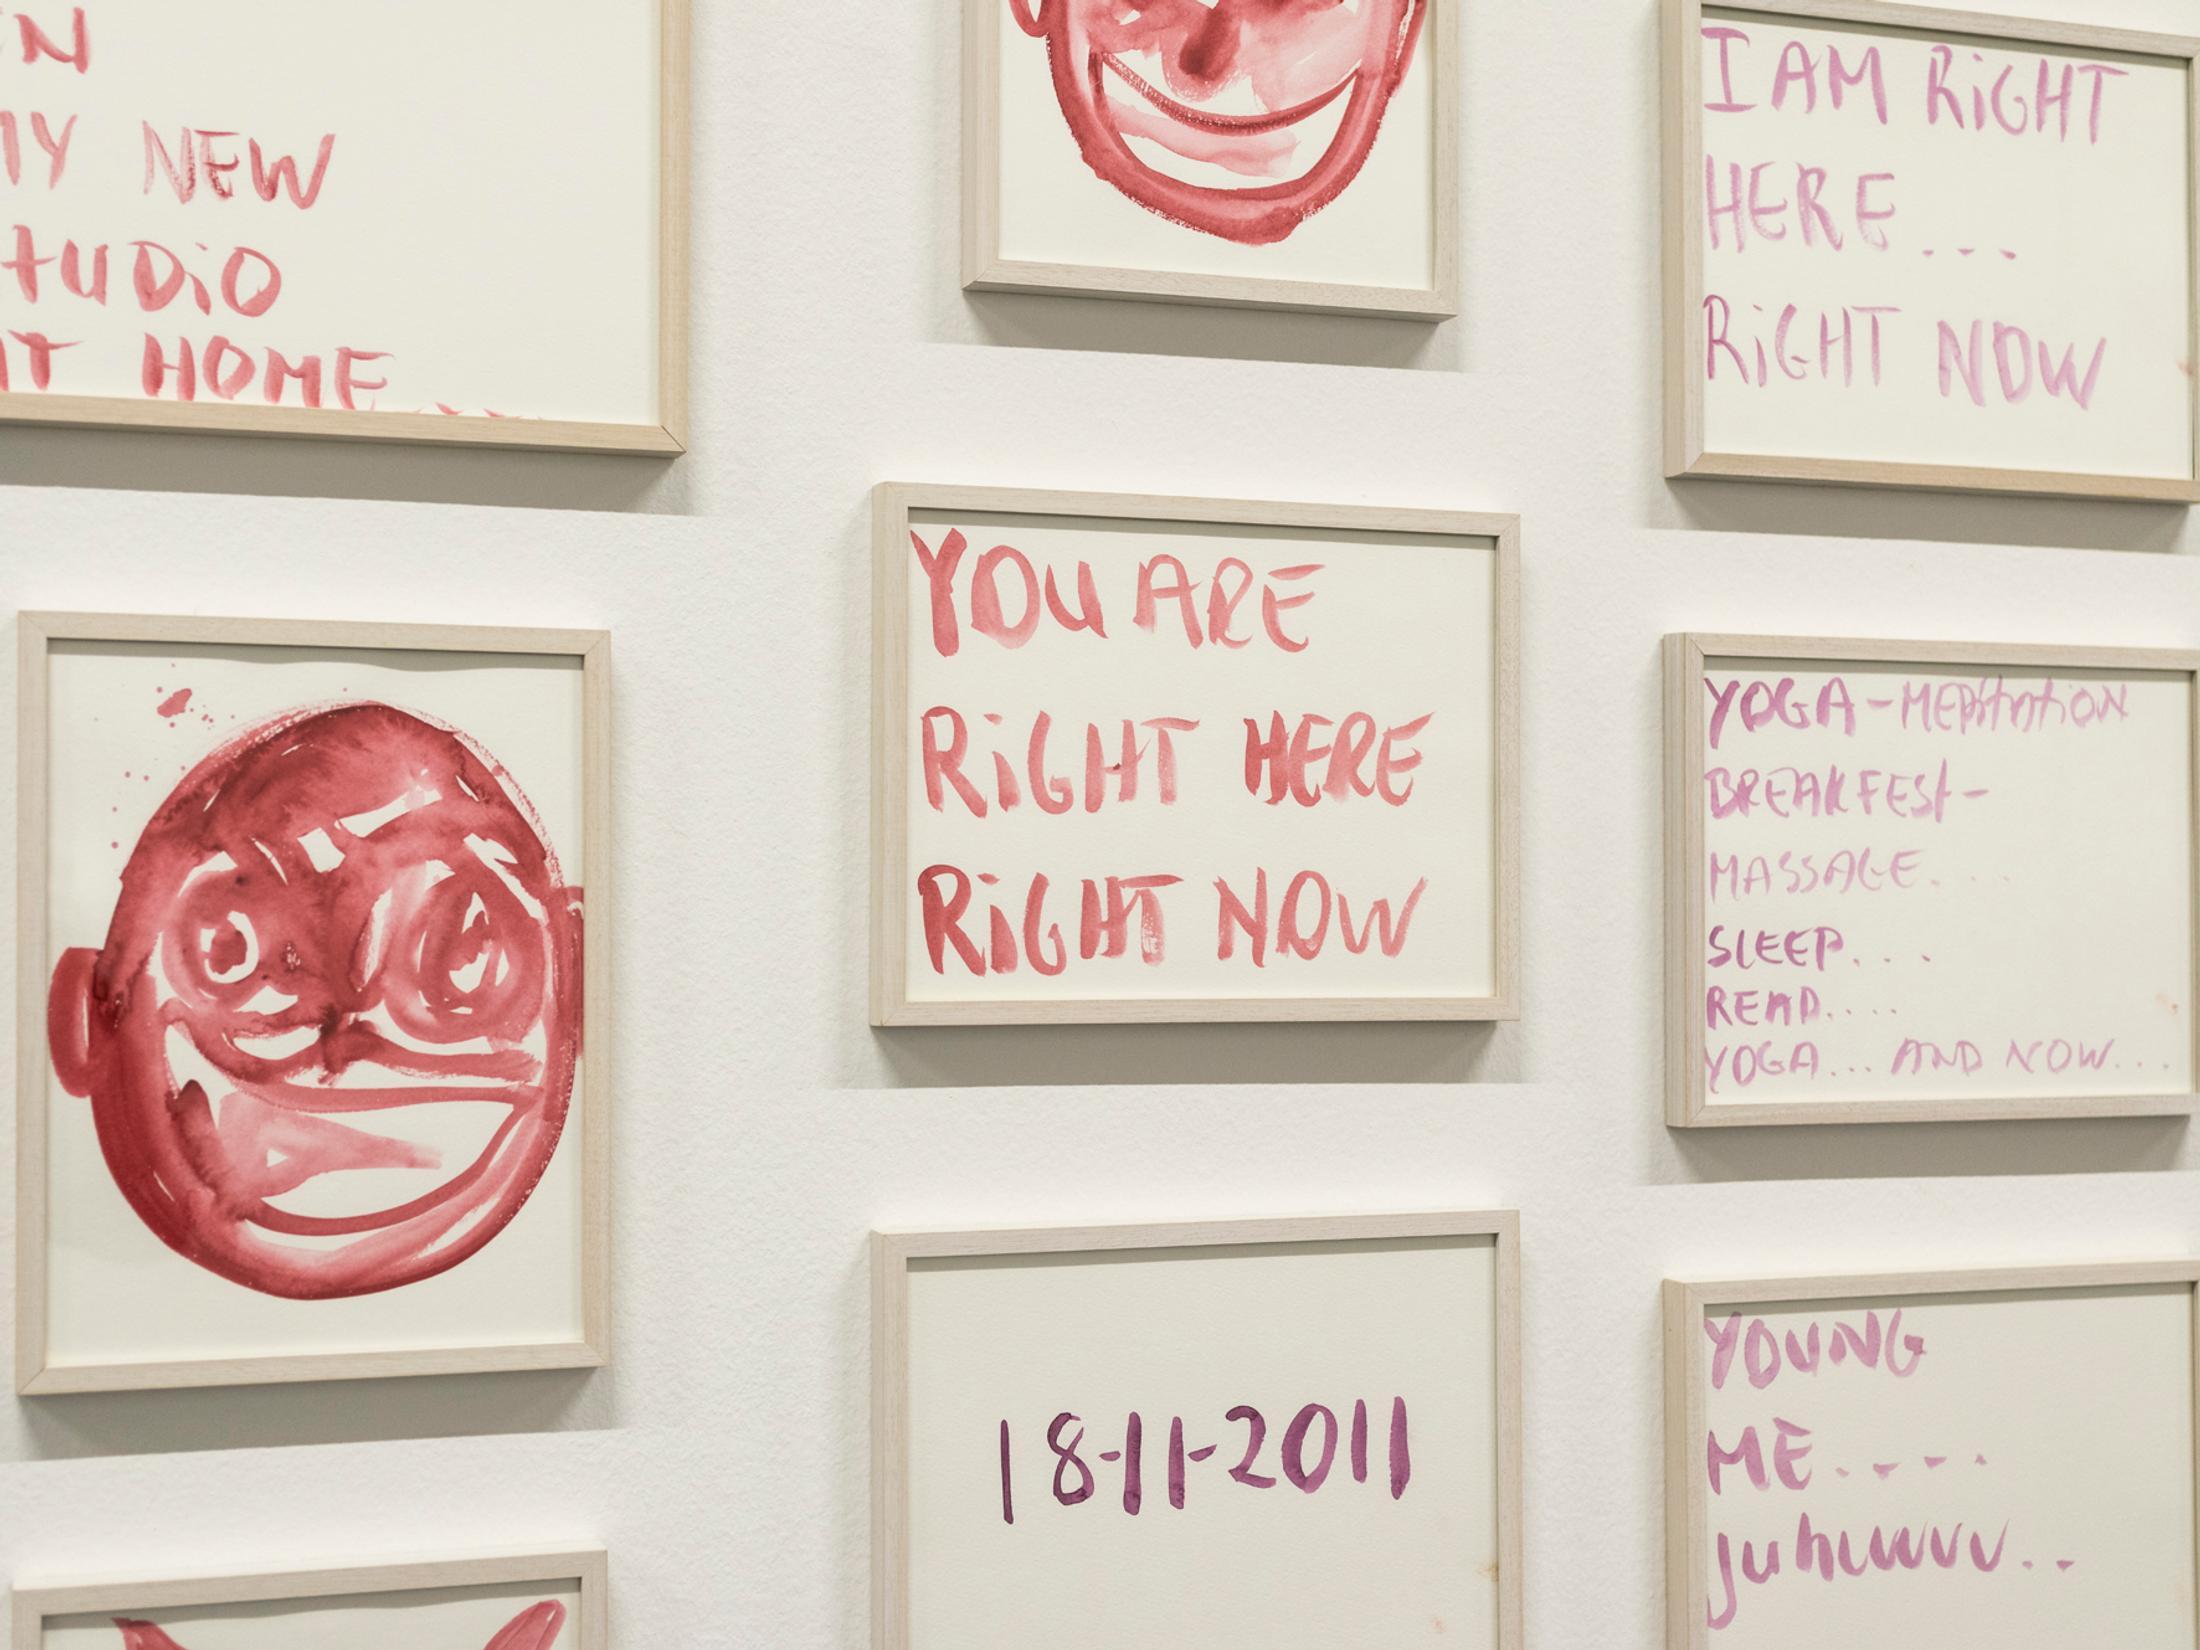 NEW
HOME....
YOU ARE
RiGHT HERE
RiGHT NOW
18-11-2011
I AM RiGHT
HERE...
RiGHT NOW
YOGA-MEDitAtiON
BREAKFESt-
MASSAGE...
SLEEP...
READ....
YOGA... AND NOW...
YOUNG
ME....